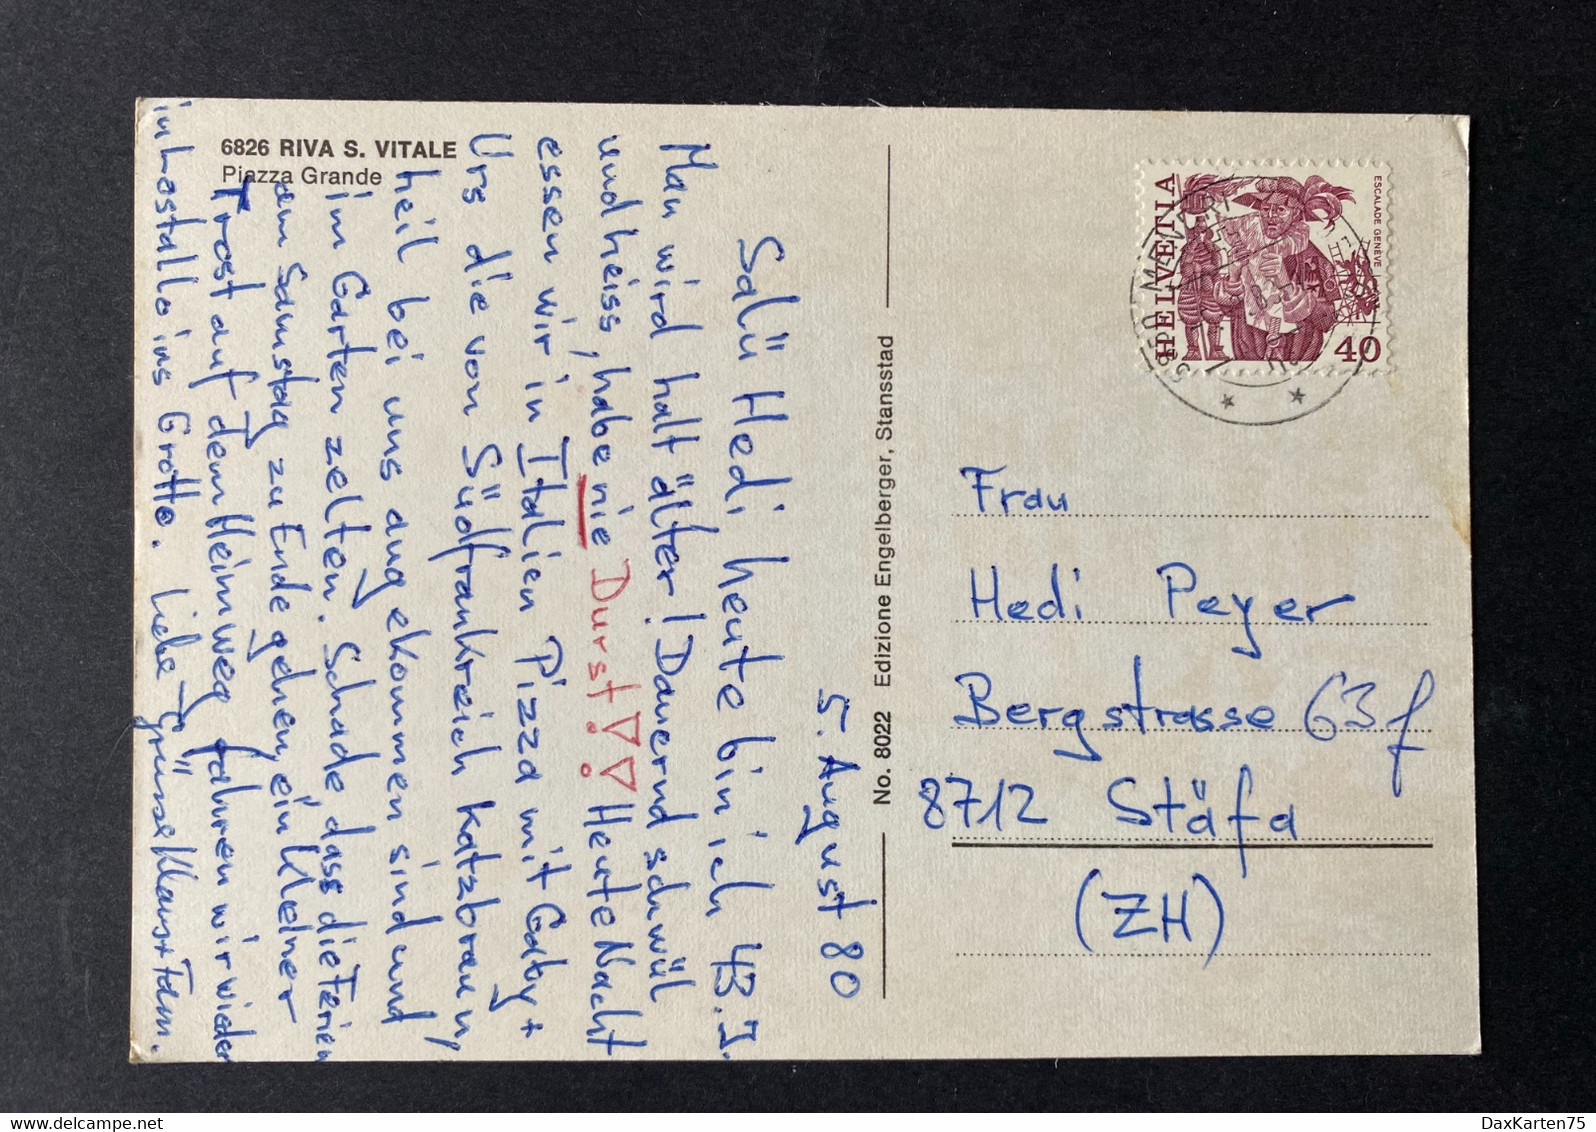 6826 RIVA S. VITALE
Piazza Grande
5. August 80
Salü Hedi, heute bin ich 43. J.
Man wird halt älter! Dauernd schwül
und heiss, habe nie Durst!!! Heute Nacht
essen wir in Italien Pizza mit Gaby +
Urs die von Südfrankreich Katzbraun,
heil bei uns angekommen sind und
im Garten zelten. Schade, dass die Ferien
am Samstag zu Ende gehen, ein kleiner
Trost auf dem Heimweg fahren wir wieder
in Lostallo ins Grotto. Liebe Grüsse Klaus + Fam.
No. 8022 Edizione Engelberger, Stansstad
HELVETIA
ESCALADE GENÈVE
40
MENDRI
Frau
Hedi Peyer
Bergstrasse 63f
8712 Stäfa
(ZH)
DaxKarten75